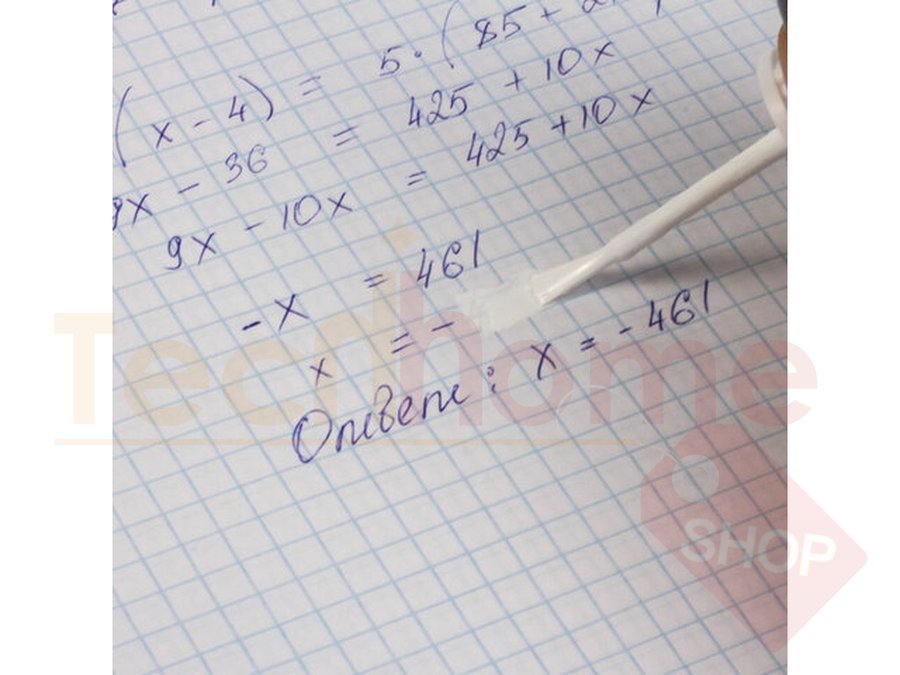 (x - 4) = 5 · (85 + 2
9x - 36 = 425 + 10x
9x - 10x = 425 + 10x
-x = 461
x = -
Ответ: x = -461
Techhome
SHOP